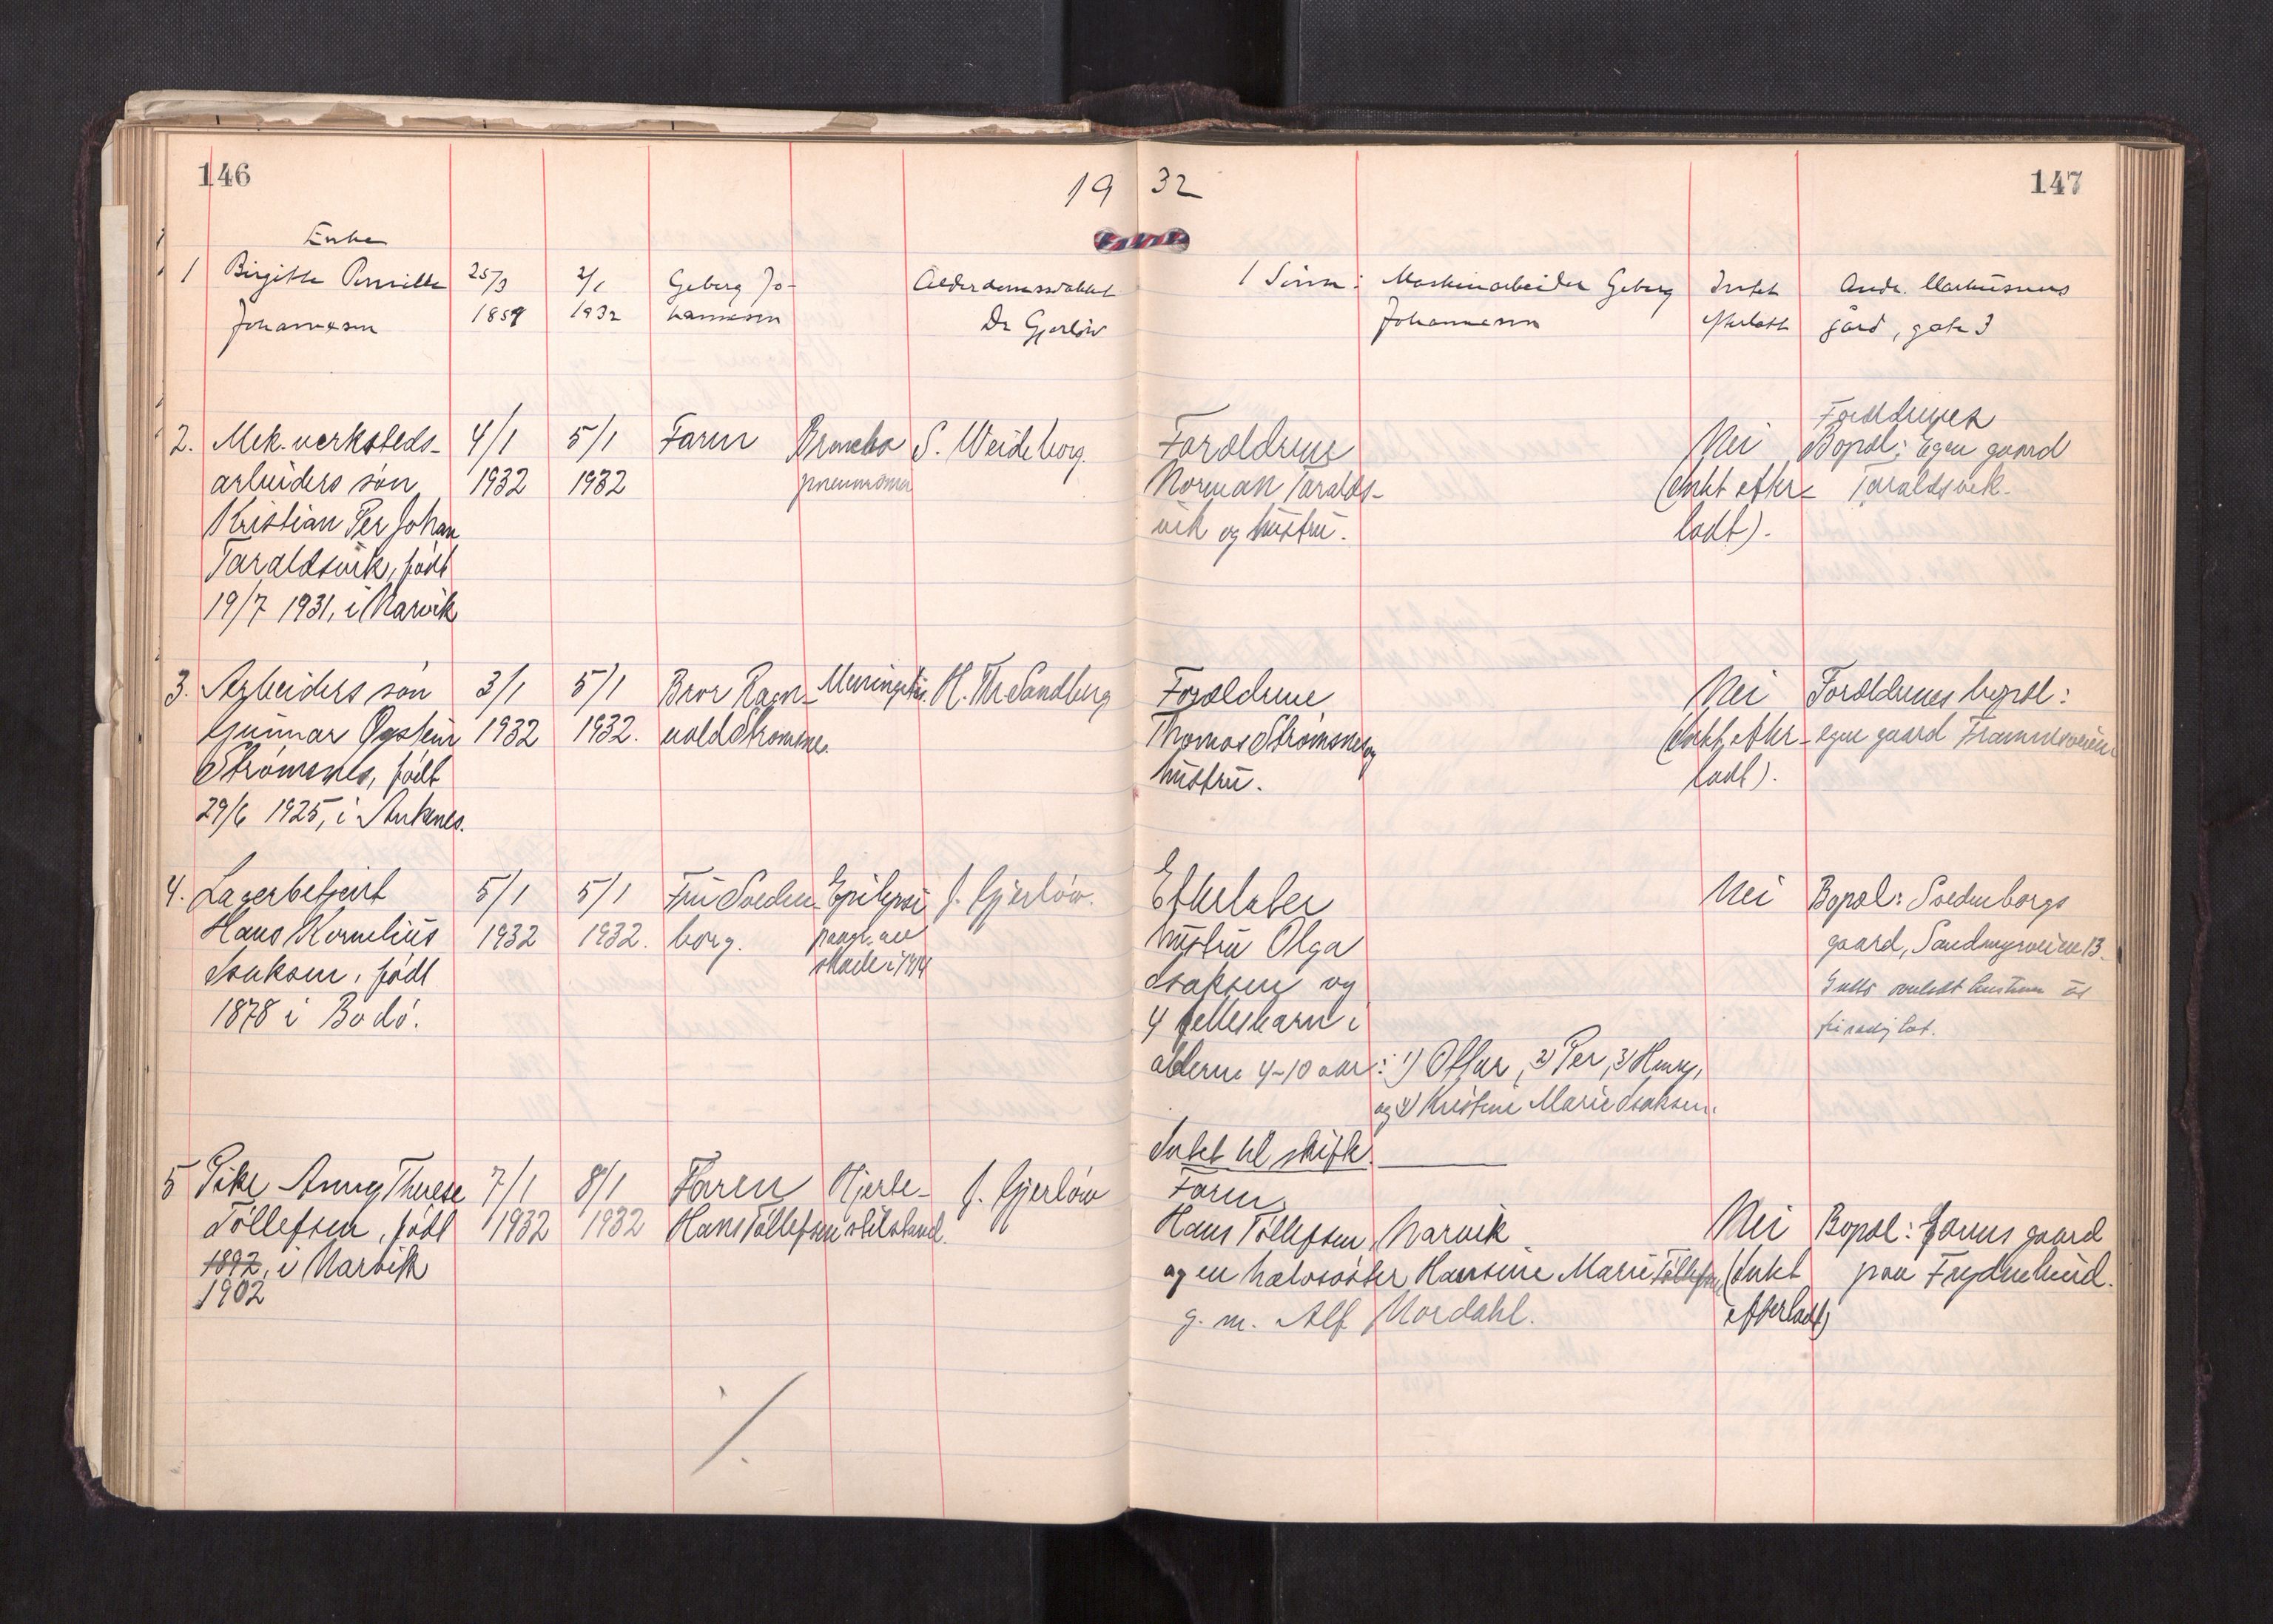 146
19 32
147
Enke
1 Birgitte Pernille 25/3 2/1 Geberg Jo- Alderdomssvakhet 1 Sønn: Maskinarbeider Geberg Intet Andr. Markussens
Johannesen 1859 1932 hannesen Dr Gjerløw Johannesen efterlatt gård, gate 3
Forældrenes
2. Mek. verksteds- 4/1 5/1 Faren Broncho S. Weideborg. Forældrene Nei Bopæl: Egen gaard
arbeiders søn 1932 1932 pneumonia Norman Taralds- (Intet efter- Taraldsvik.
Kristian Per Johan vik og hustru. ladt).
Taraldsvik, født
19/7 1931, i Narvik
3. Arbeiders søn 3/1 5/1 Bror Ragn- Meningitis. H. Thr Sandberg Forældrene Nei Forældrenes bopæl:
Gunnar Øystein 1932 1932. vald Strømsnes. Thomas Strømsnes og (Intet efter- egen gaard Framnesveien
Strømsnes, født hustru. ladt).
29/6 1925, i Ankenes.
4. Lagerbetjent 5/1 5/1 Fru Sveden- Epilepsi J. Gjerløw. Efterlater Nei Bopæl: Svedenborgs
Hans Kornelius 1932 1932. borg. paagr. av hustru Olga gaard, Sandmyrveien 13.
Isaksen, født skade i 1914 Isaksen og
1878 i Bodø. 4 fellesbarn i
alderen 4-10 aar: 1) Ottar, 2) Per, 3) Henry,
og 4) Kristine Marie Isaksen.
Intet til skifte.
5 Pike Anny Therese 7/1 8/1 Faren Hjerte- J. Gjerløw Faren,
Tollefsen, født 1932 1932 Hans Tollefsen stilstand. Hans Tollefsen, Narvik Nei Bopæl: Farens gaard
1892, i Narvik og en halvsøster Hansine Marie Tollefsen, (Intet paa Frydenlund.
1902 g. m. Alf Nordahl. efterladt)